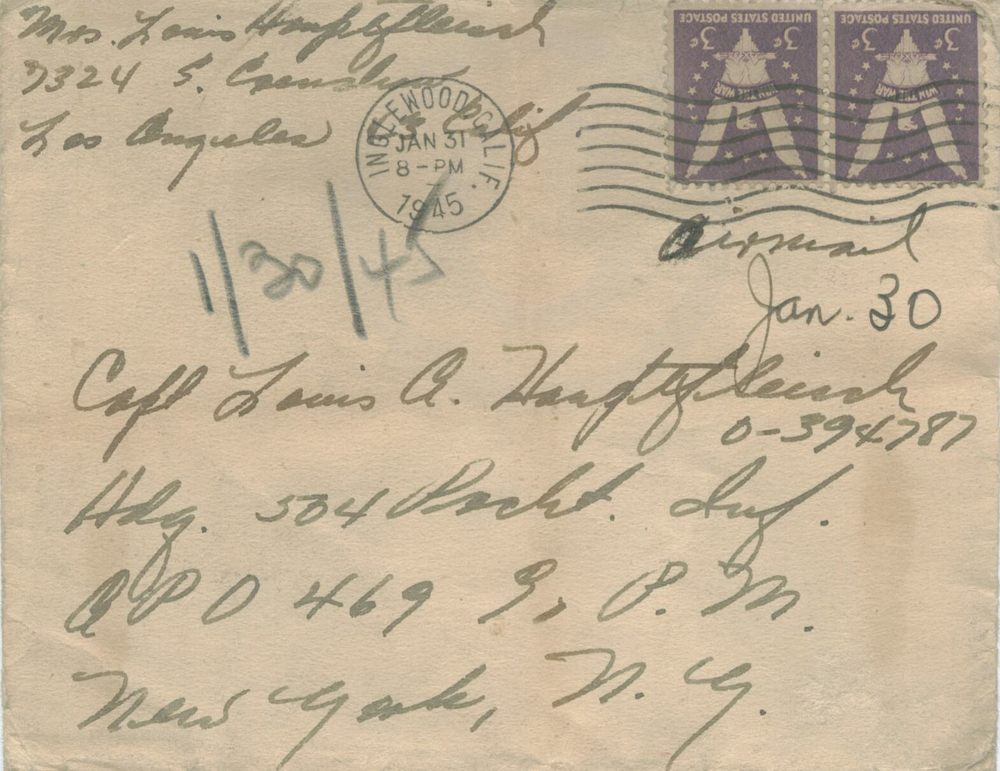 Mrs. Louis Hauptfleisch
7324 S. Crenshaw
Los Angeles Calif
INGLEWOOD, CALIF.
JAN 31
8-PM
1945
UNITED STATES POSTAGE
3¢ 3¢
WIN THE WAR
UNITED STATES POSTAGE
3¢ 3¢
WIN THE WAR
Airmail
Jan. 30
1/30/45
Capt Louis A. Hauptfleisch
0-394787
Hdq. 504 Pacht. Inf.
APO 469 % P. M.
New York, N. Y.